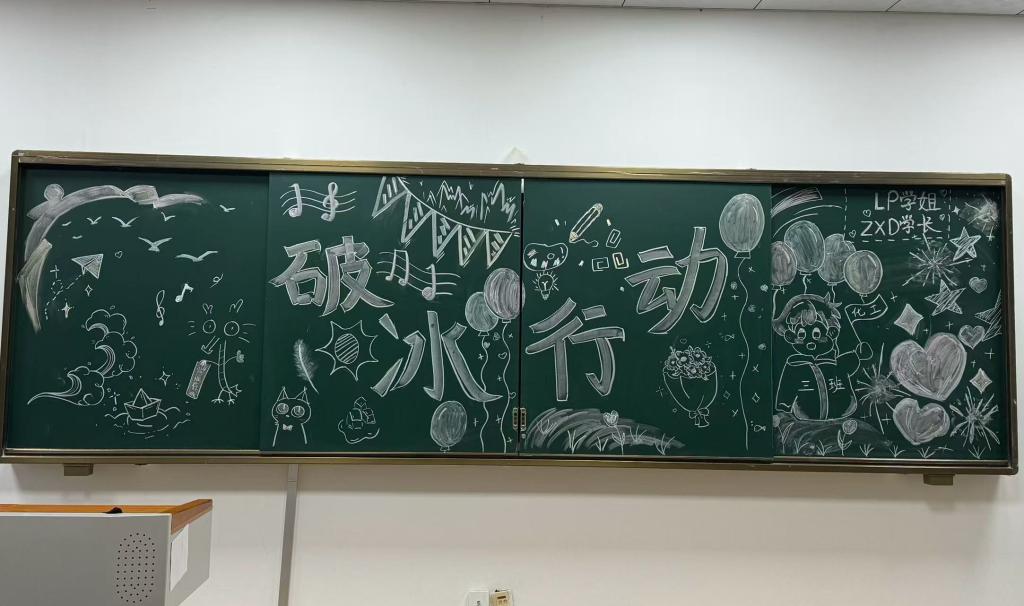 破冰行动
LP学姐
ZXD学长
化工
三班